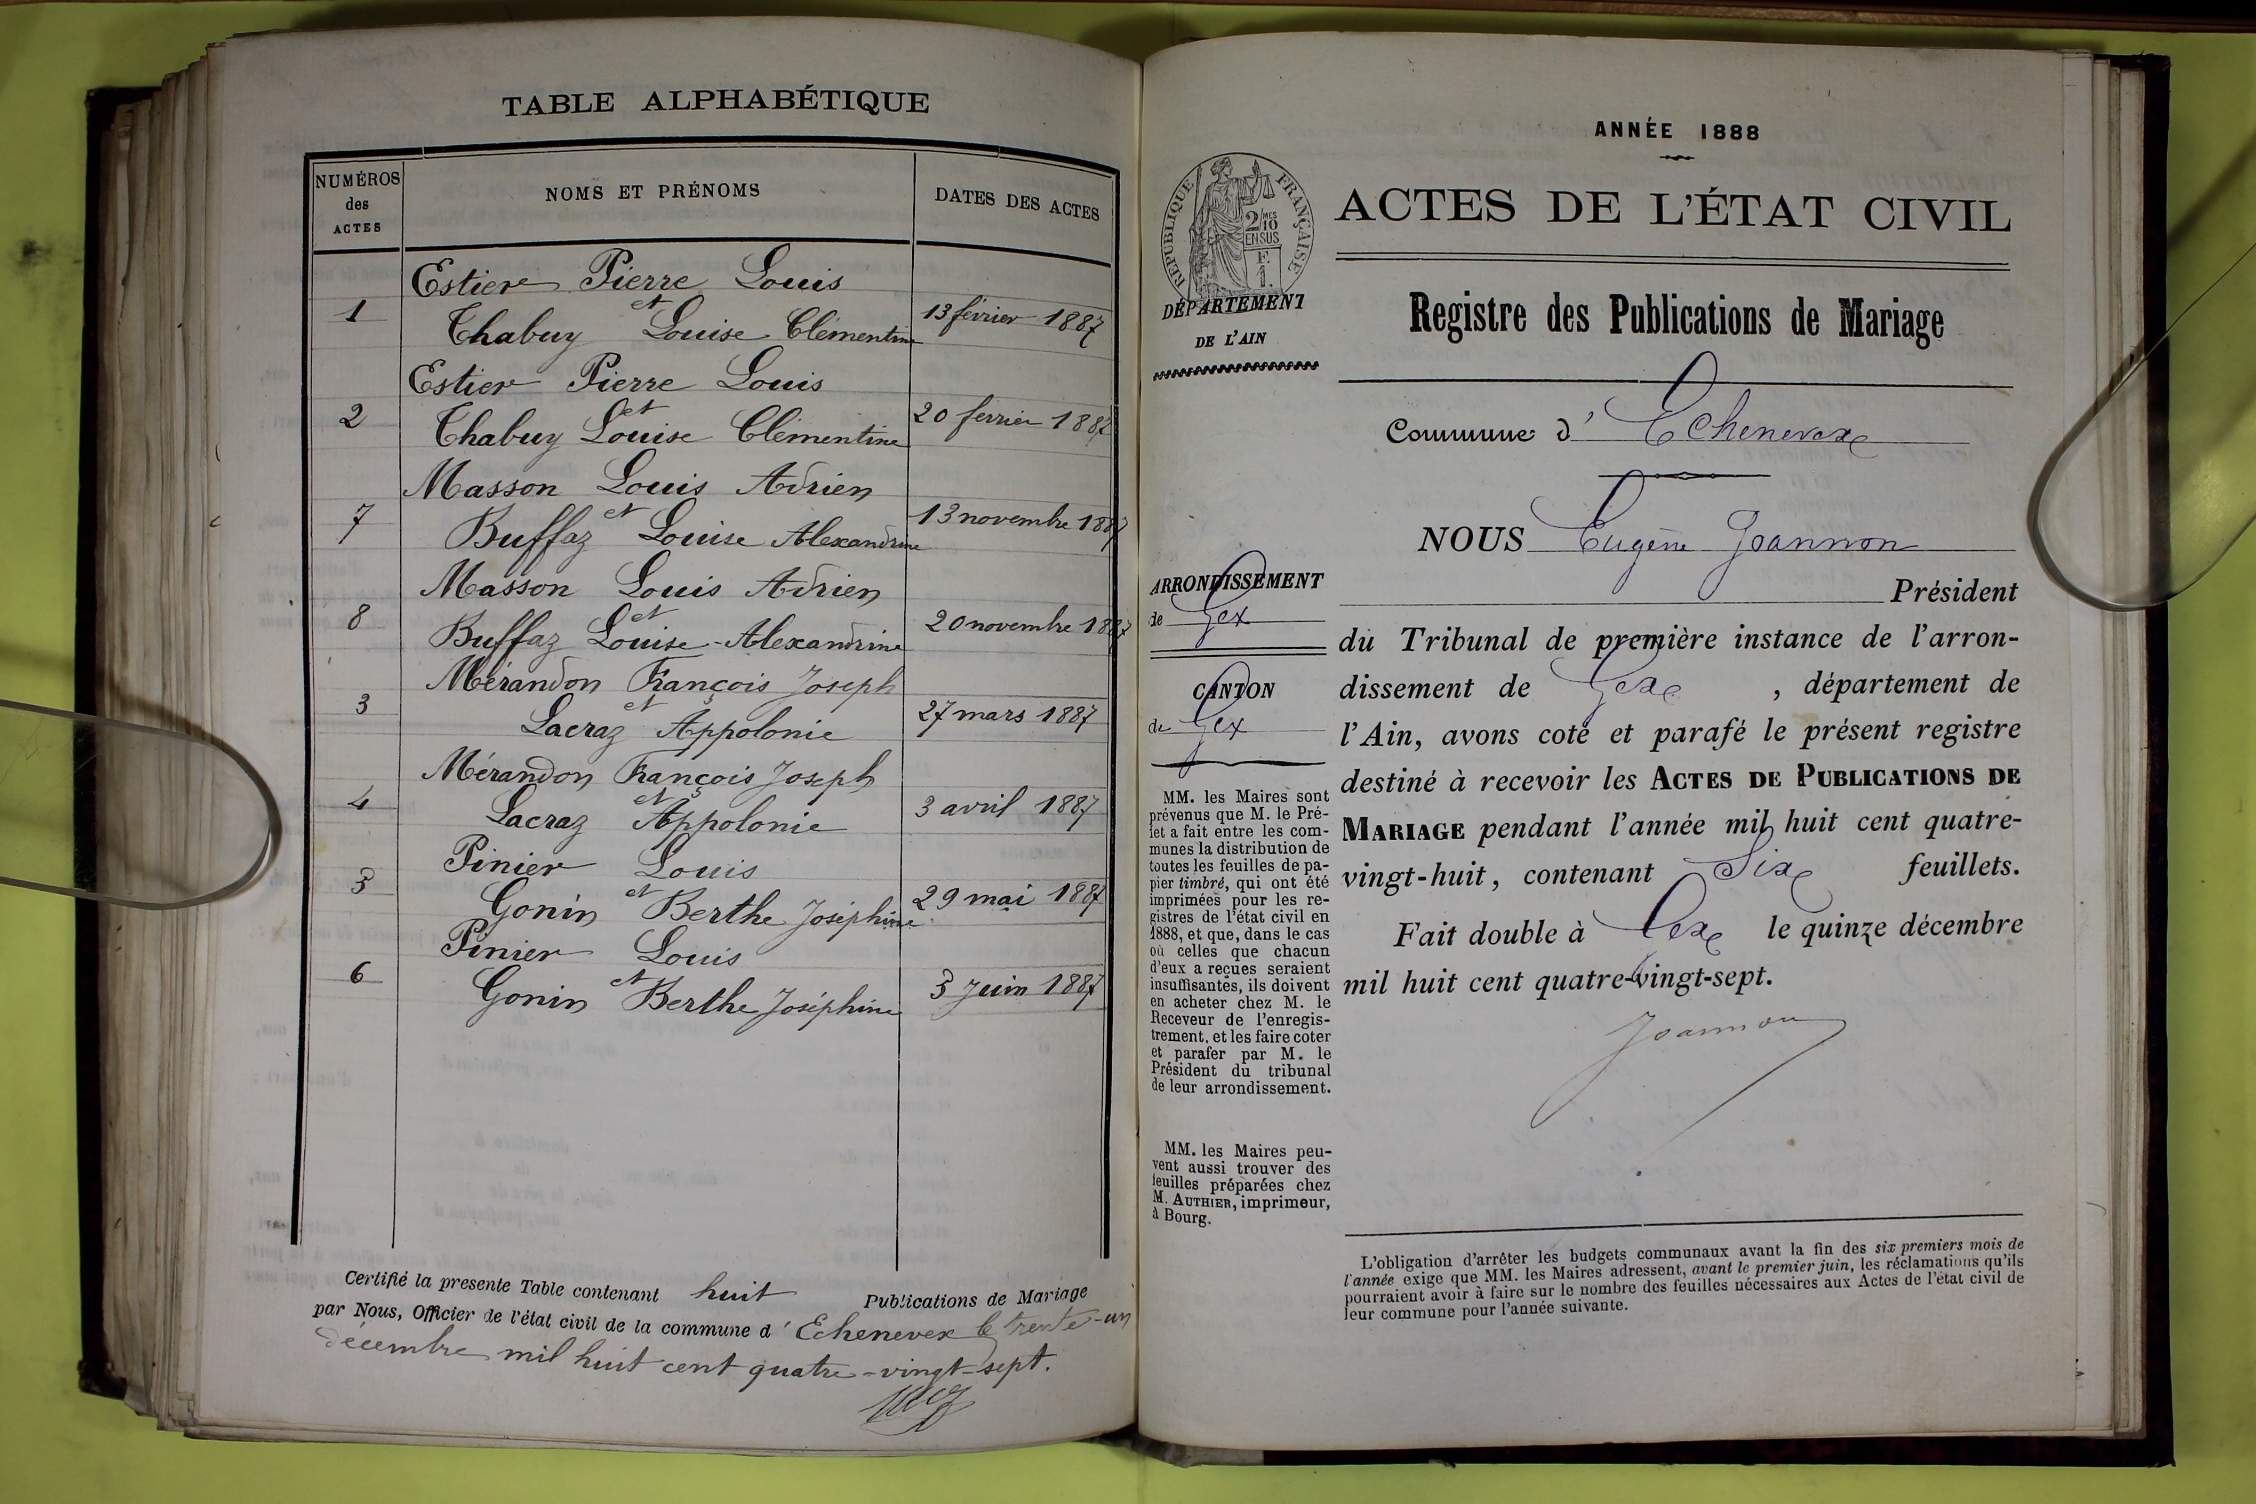 TABLE ALPHABÉTIQUE
NUMÉROS
des
ACTES
NOMS ET PRÉNOMS
DATES DES ACTES
Estier Pierre Louis
et
1 Thabuy Louise Clémentine 13 février 1887
Estier Pierre Louis
et
2 Thabuy Louise Clémentine 20 ferrier 1887
Masson Louis Adrien
et
7 Buffaz Louise Alexandrine 13 novembre 1887
Masson Louis Adrien
et
8 Buffaz Louise-Alexandrine 20 novembre 1887
Mérandon François Joseph
et
3 Lacraz Appolonie 27 mars 1887
Mérandon François Joseph
et
4 Lacraz Appolonie 3 avril 1887
Pinier Louis
et
5 Gonin Berthe Joséphine 29 mai 1887
Pinier Louis
et
6 Gonin Berthe Joséphine 5 Juin 1887
Certifié la presente Table contenant huit Publications de Mariage
par Nous, Officier de l'état civil de la commune d'Echenevex le trente-un
décembre mil huit cent quatre-vingt-sept.
ANNÉE 1888
RÉPUBLIQUE FRANÇAISE
2/10 MES
EN SUS
F.
1.
DÉPARTEMENT
DE L'AIN
ACTES DE L'ÉTAT CIVIL
Registre des Publications de Mariage
Commune d'Echenevex
NOUS Eugène Joannon
Président
du Tribunal de première instance de l'arron-
dissement de Gex, département de
l'Ain, avons coté et parafé le présent registre
destiné à recevoir les ACTES DE PUBLICATIONS DE
MARIAGE pendant l'année mil huit cent quatre-
vingt-huit, contenant Six feuillets.
Fait double à Gex le quinze décembre
mil huit cent quatre-vingt-sept.
Joannon
ARRONDISSEMENT
de Gex
CANTON
de Gex
MM. les Maires sont
prévenus que M. le Pré-
fet a fait entre les com-
munes la distribution de
toutes les feuilles de pa-
pier timbré, qui ont été
imprimées pour les re-
gistres de l'état civil en
1888, et que, dans le cas
où celles que chacun
d'eux a reçues seraient
insuffisantes, ils doivent
en acheter chez M. le
Receveur de l'enregis-
trement, et les faire coter
et parafer par M. le
Président du tribunal
de leur arrondissement.
MM. les Maires peu-
vent aussi trouver des
feuilles préparées chez
M. AUTHIER, imprimeur,
à Bourg.
L'obligation d'arrêter les budgets communaux avant la fin des six premiers mois de
l'année exige que MM. les Maires adressent, avant le premier juin, les réclamations qu'ils
pourraient avoir à faire sur le nombre des feuilles nécessaires aux Actes de l'état civil de
leur commune pour l'année suivante.